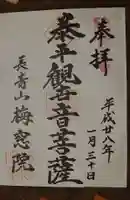 奉拝
平成廿八年
一月三十日
泰平観世音菩薩
長青山梅窓院